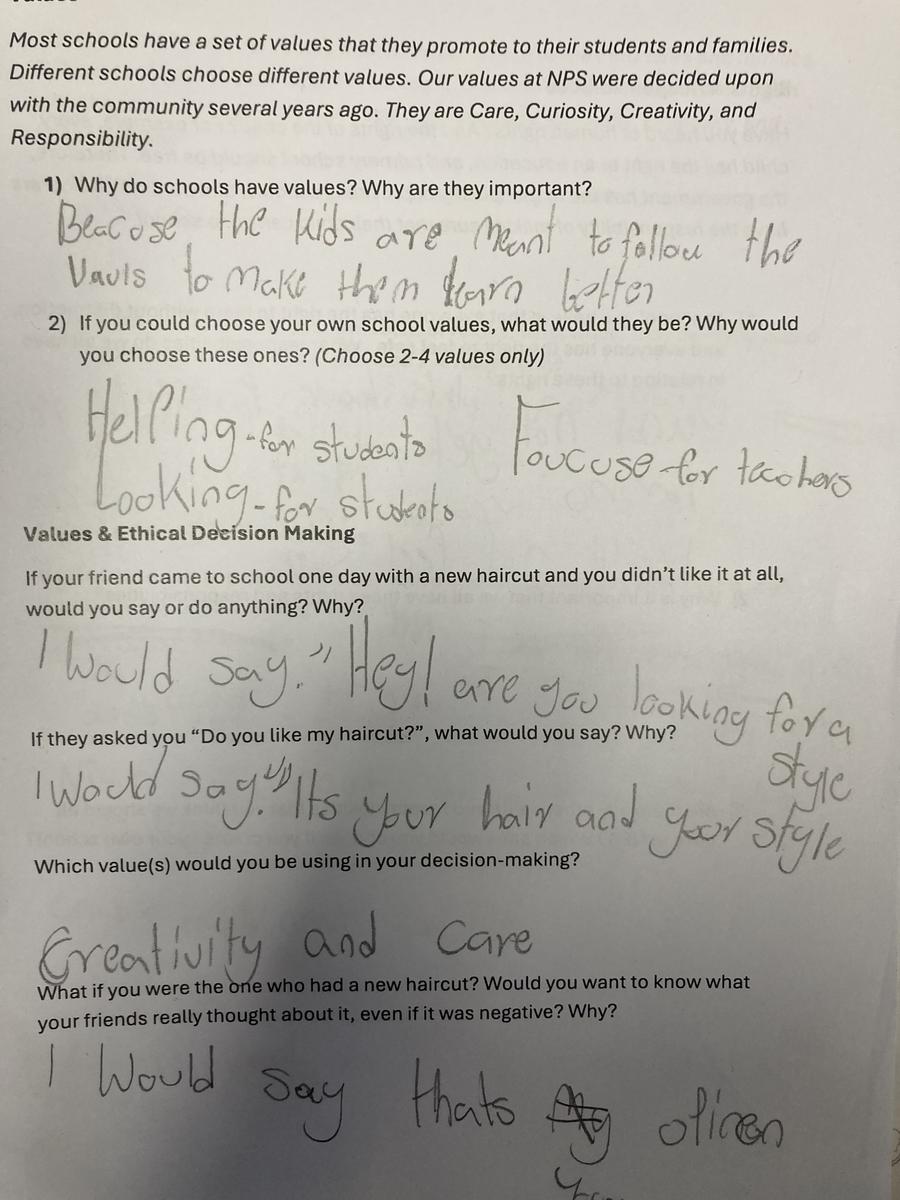 Most schools have a set of values that they promote to their students and families.
Different schools choose different values. Our values at NPS were decided upon
with the community several years ago. They are Care, Curiosity, Creativity, and
Responsibility.
1) Why do schools have values? Why are they important?
Beacose the kids are meant to follow the
Vauls to make them learn better
2) If you could choose your own school values, what would they be? Why would
you choose these ones? (Choose 2-4 values only)
Helping - for students
Foucuse - for teachers
Looking - for students
Values & Ethical Decision Making
If your friend came to school one day with a new haircut and you didn't like it at all,
would you say or do anything? Why?
I Would say." Hey! are you looking for a
style
If they asked you "Do you like my haircut?", what would you say? Why?
I Would say." Its your hair and your style
Which value(s) would you be using in your decision-making?
Creativity and Care
What if you were the one who had a new haircut? Would you want to know what
your friends really thought about it, even if it was negative? Why?
I Would say thats